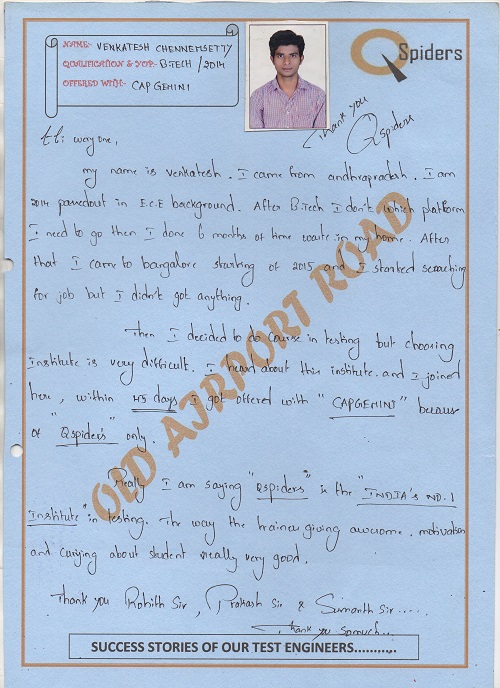 NAME:- VENKATESH CHENNEMSETTY
QUALIFICATION & YOP:- B.TECH / 2014
OFFERED WITH:- CAP GEMINI
Q Spiders
Thank you
Qspiders
Hi: every one,
my name is venkatesh. I came from andhrapradesh. I am
2014 passedout in E.C.E background. After B.Tech I don't which platform
I need to go then I done 6 months of time waste in my home. After
that I came to bangalore starting of 2015 and I started searching
for job but I didn't got anything.
Then I decided to do course in testing but choosing
Institute is very difficult. I heard about this institute. and I joined
here, within 45 days I got offered with "CAPGEMINI" because
of "Qspider's" only.
Really I am saying "Qspiders" is the "INDIA'S NO.1
Institute" in testing. The way the trainer giving awesome, motivation
and caring about student really very good.
Thank you Rohith Sir, Prakash Sir & Sumanth Sir.....
Thank you somuch...
OLD AIRPORT ROAD
SUCCESS STORIES OF OUR TEST ENGINEERS...........